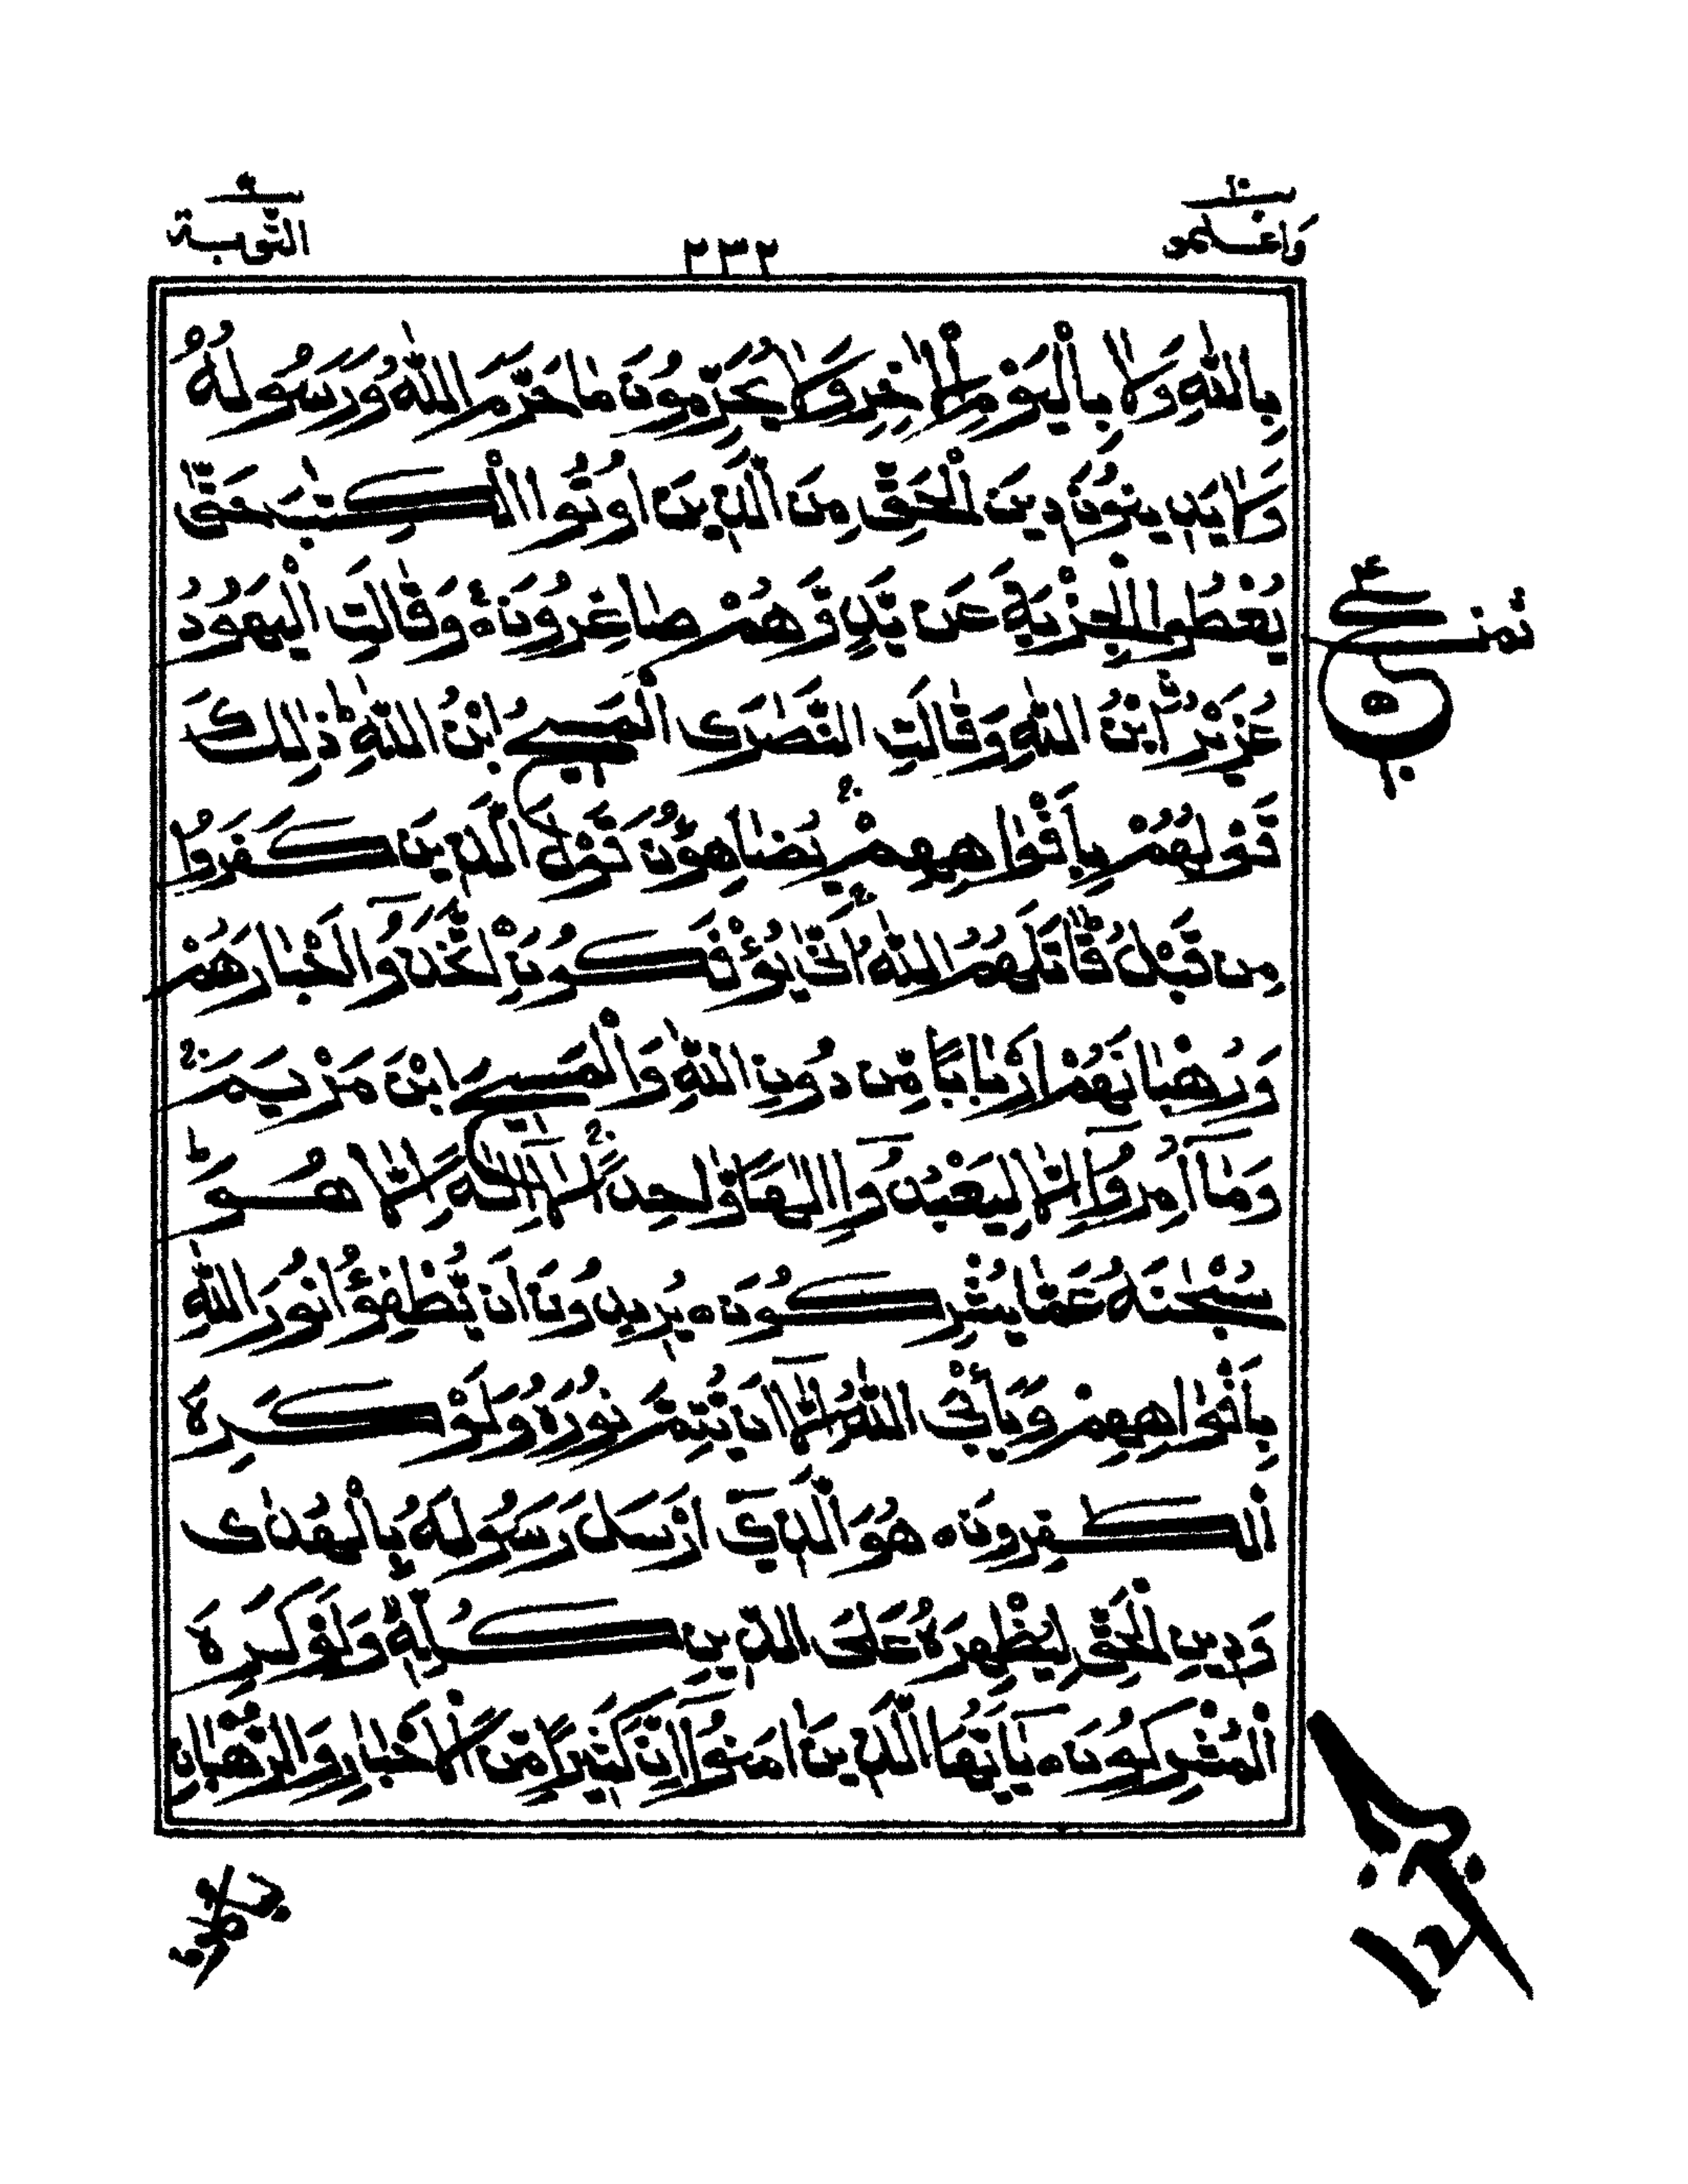 ١٠
واعلمو
٢٣٢
٩
التوبة
بِاللّٰهِ وَلَا بِالْيَوْمِ الْاٰخِرِ وَلَا يُحَرِّمُوْنَ مَا حَرَّمَ اللّٰهُ وَرَسُوْلُهٗ
وَلَا يَدِيْنُوْنَ دِيْنَ الْحَقِّ مِنَ الَّذِيْنَ اُوْتُوا الْكِتٰبَ حَتّٰى
يُعْطُوا الْجِزْيَةَ عَنْ يَّدٍ وَّهُمْ صٰاغِرُوْنَ ۞ وَقَالَتِ الْيَهُوْدُ
عُزَيْرُ ۨابْنُ اللّٰهِ وَقَالَتِ النَّصٰرَى الْمَسِيْحُ ابْنُ اللّٰهِ ؕ ذٰلِكَ
قَوْلُهُمْ بِاَفْوٰاهِهِمْ ۚ يُضٰاهِؤُنَ قَوْلَ الَّذِيْنَ كَفَرُوْا
مِنْ قَبْلُ ؕ قَاتَلَهُمُ اللّٰهُ ۚ اَنّٰى يُؤْفَكُوْنَ ۞ اِتَّخَذُوْۤا اَحْبٰارَهُمْ
وَرُهْبٰانَهُمْ اَرْبٰابًا مِّنْ دُوْنِ اللّٰهِ وَالْمَسِيْحَ ابْنَ مَرْيَمَ ۚ
وَمَاۤ اُمِرُوْۤا اِلَّا لِيَعْبُدُوْۤا اِلٰهًا وَّاحِدًا ۚ لَاۤ اِلٰهَ اِلَّا هُوَ ؕ
سُبْحٰنَهٗ عَمَّا يُشْرِكُوْنَ ۞ يُرِيْدُوْنَ اَنْ يُّطْفِؤُا نُوْرَ اللّٰهِ
بِاَفْوٰاهِهِمْ وَيَأْبَى اللّٰهُ اِلَّاۤ اَنْ يُّتِمَّ نُوْرَهٗ وَلَوْ كَرِهَ
الْكٰفِرُوْنَ ۞ هُوَ الَّذِيْۤ اَرْسَلَ رَسُوْلَهٗ بِالْهُدٰى
وَدِيْنِ الْحَقِّ لِيُظْهِرَهٗ عَلَى الدِّيْنِ كُلِّهٖ ؕ وَلَوْ كَرِهَ
الْمُشْرِكُوْنَ ۞ يٰۤاَيُّهَا الَّذِيْنَ اٰمَنُوْۤا اِنَّ كَثِيْرًا مِّنَ الْاَحْبٰارِ وَالرُّهْبٰانِ
ثمن
٤
ع
٥
١٠